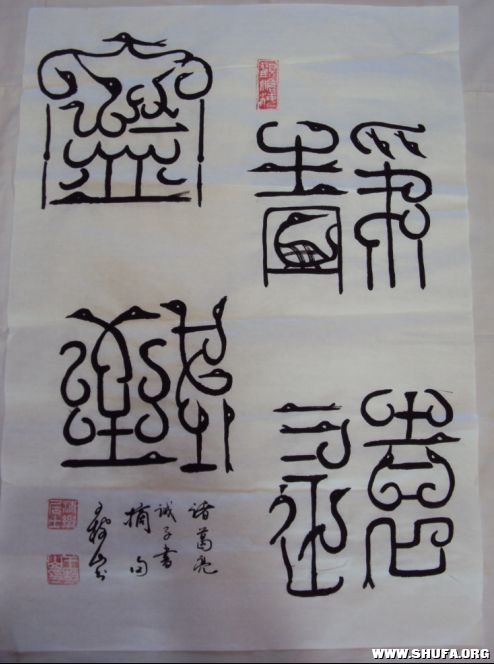 寧靜
致遠
諸葛亮
誡子書
摘句
WWW.SHUFA.ORG